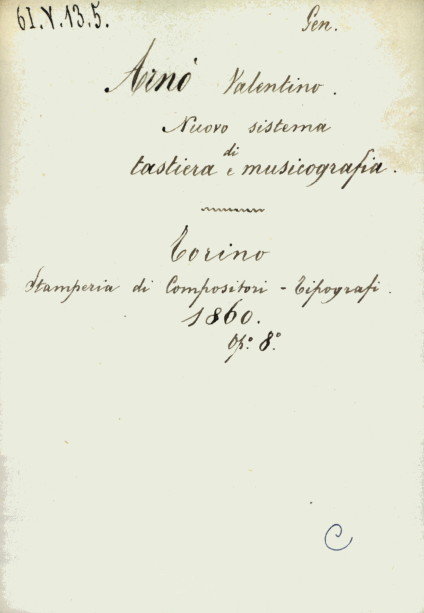 61.V.13.5. Gen.
Arnò Valentino.
Nuovo sistema
di
tastiera e musicografia.
Torino
Stamperia di Compositori - Tipografi.
1860.
Op.° 8.°
C